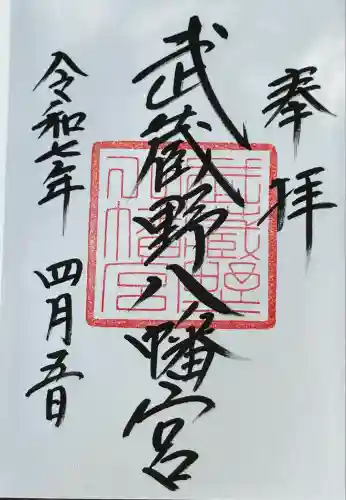 奉拝
武蔵野八幡宮
武蔵野八幡宮
令和七年 四月五日